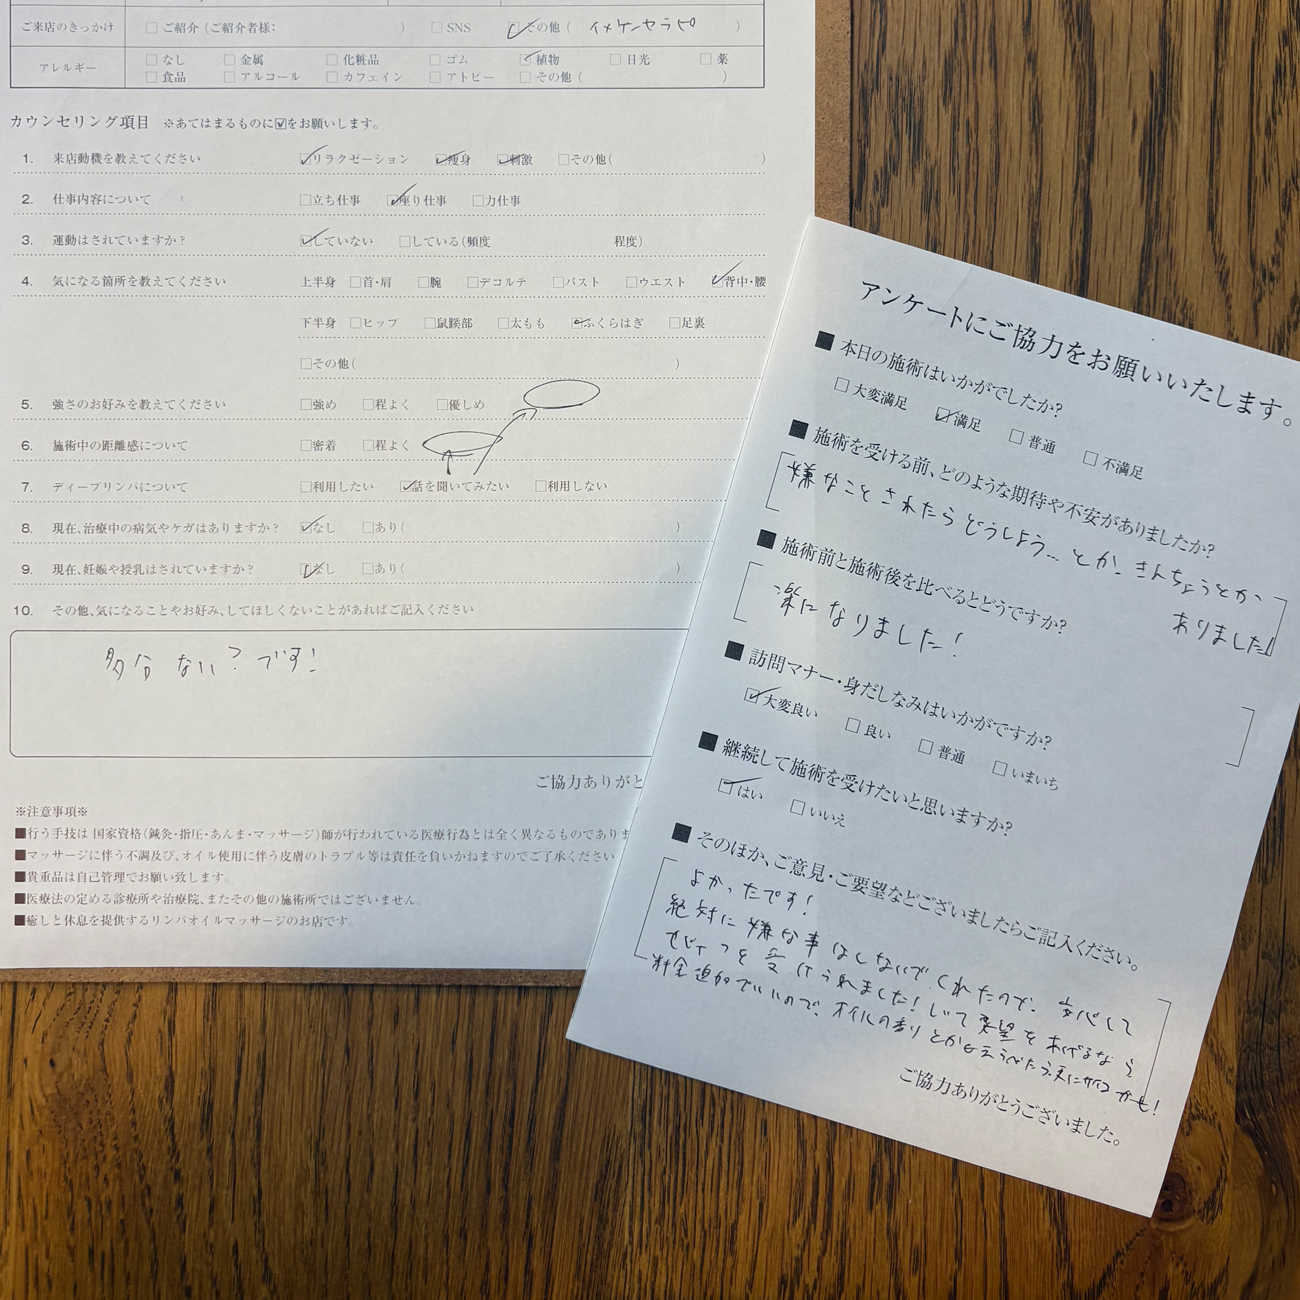 ご来店のきっかけ □ご紹介（ご紹介者様： ） □SNS ☑その他（ イケメンセラピ ）
アレルギー □なし □金属 □化粧品 □ゴム ☑植物 □日光 □薬
□食品 □アルコール □カフェイン □アトピー □その他（ ）
カウンセリング項目 ※あてはまるものに☑をお願いします。
1. 来店動機を教えてください ☑リラクゼーション ☑痩身 ☑刺激 □その他( )
2. 仕事内容について □立ち仕事 ☑座り仕事 □力仕事
3. 運動はされていますか？ ☑していない □している(頻度 程度)
4. 気になる箇所を教えてください 上半身 □首・肩 □腕 □デコルテ □バスト □ウエスト ☑背中・腰
下半身 □ヒップ □鼠蹊部 □太もも ☑ふくらはぎ □足裏
□その他( )
5. 強さのお好みを教えてください □強め □程よく □優しめ
6. 施術中の距離感について □密着 □程よく
7. ディープリンパについて □利用したい ☑話を聞いてみたい □利用しない
8. 現在、治療中の病気やケガはありますか？ ☑なし □あり( )
9. 現在、妊娠や授乳はされていますか？ ☑なし □あり( )
10. その他、気になることやお好み、してほしくないことがあればご記入ください
多分ない？です！
ご協力ありがと
※注意事項※
■行う手技は 国家資格(鍼灸・指圧・あんま・マッサージ)師が行われている医療行為とは全く異なるものでありま
■マッサージに伴う不調及び、オイル使用に伴う皮膚のトラブル等は責任を負いかねますのでご了承ください
■貴重品は自己管理でお願い致します。
■医療法の定める診療所や治療院、またその他の施術所ではございません。
■癒しと休息を提供するリンパオイルマッサージのお店です。
アンケートにご協力をお願いいたします。
■ 本日の施術はいかがでしたか？
□大変満足 ☑満足 □普通 □不満足
■ 施術を受ける前、どのような期待や不安がありましたか？
嫌なことされたらどうしよう… とか、きんちょうとか
ありました！
■ 施術前と施術後を比べるとどうですか？
楽になりました！
■ 訪問マナー・身だしなみはいかがですか？
☑大変良い □良い □普通 □いまいち
■ 継続して施術を受けたいと思いますか？
☑はい □いいえ
■ そのほか、ご意見・ご要望などございましたらご記入ください。
よかったです！
絶対に嫌な事はしないでくれたので、安心して
を受けられました！ 要望をあげるなら
料金追加でいいので、オイルの香りとかえらべたら更に かも！
ご協力ありがとうございました。